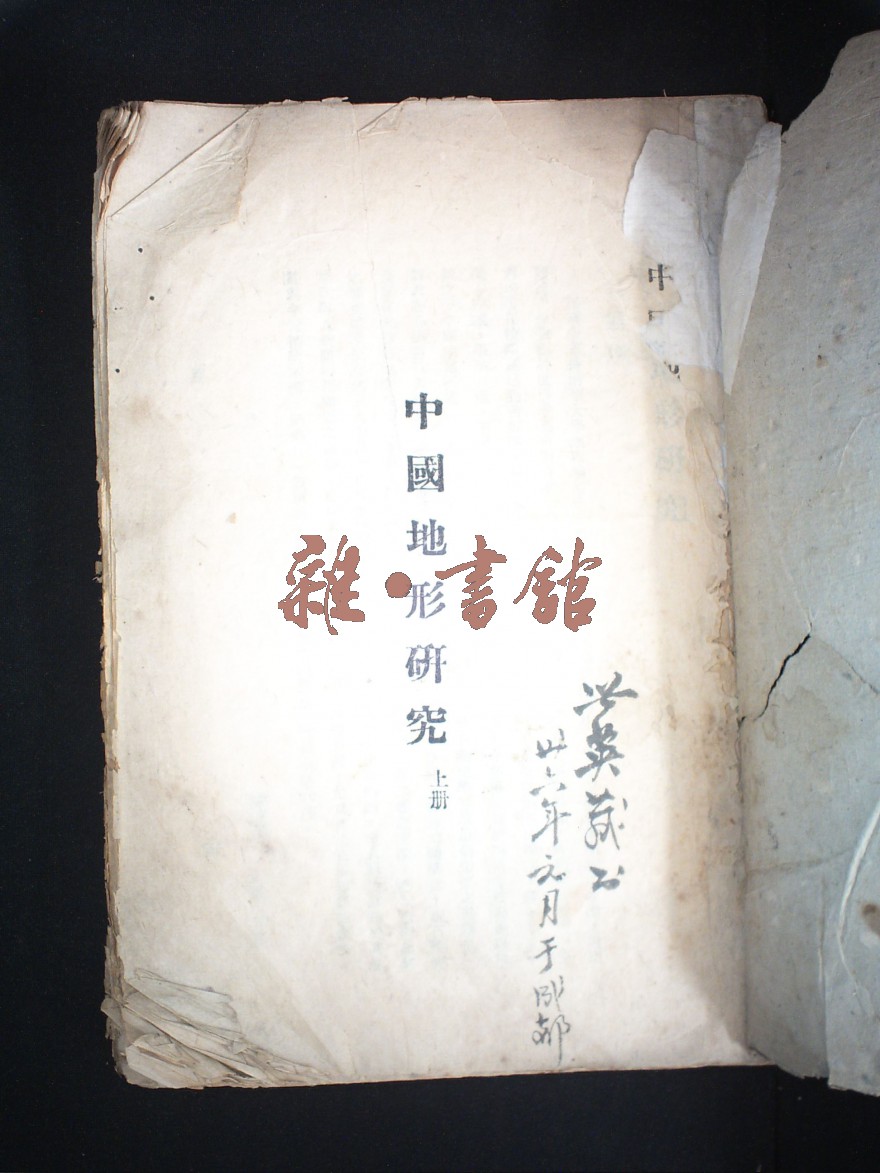 中
中國地形研究
上册
雜·書館
洪英藏书
卅六年元月于成都